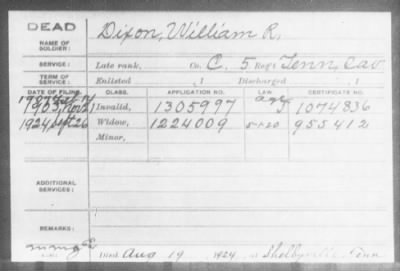 DEAD
NAME OF SOLDIER:
Dixon, William R.
SERVICE:
Late rank, Co. C. 5 Reg't Tenn. Cav
TERM OF SERVICE:
Enlisted , 1 Discharged , 1
DATE OF FILING. CLASS. APPLICATION NO. LAW CERTIFICATE NO.
Invalid, 1305997 1074836
1924 Sept 26 Widow, 1224009 5-1-20 955412
Minor,
ADDITIONAL SERVICES:
REMARKS:
Died Aug 19 1924 at Shelbyville Tenn